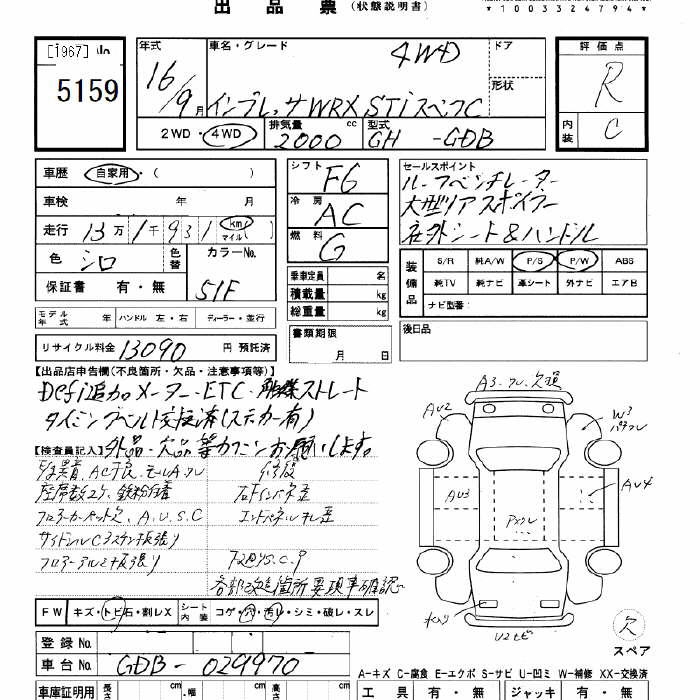 出品票(状態説明書)
*1003324794*
[1967]
5159
年式 車名・グレード ドア
16/9月 インプレッサWRX STiスペックC 4WD
形状
2WD・4WD 排気量 cc 型式
2000 GH -GDB
評価点
R
内装 C
車歴 自家用・( )
車検 年 月
走行 13万1千931 (km マイル)
色 シロ 色替 カラーNo.
保証書 有・無 51F
シフト F6
冷房 AC
燃料 G
乗車定員 名
積載量 kg
総重量 kg
セールスポイント
ルーフベンチレーター
大型リアスポイラー
社外シート&ハンドル
装備品 S/R 純A/W P/S P/W ABS
純TV 純ナビ 革シート 外ナビ エアB
ナビ型番:
モデル年式 年 ハンドル 左・右 ディーラー・並行
書類期限 月 日
後日品
リサイクル料金 13090 円 預託済
【出品店申告欄(不良箇所・欠品・注意事項等)】
Defi追加メーター・ETC・触媒ストレート
タイミングベルト交換済(ステッカー有)
外品・欠品等カクニンお願いします。
【検査員記入】
座席数2ケ、鉄粉付着
フロアーカーペット欠、A.U.S.C
サイドシルCステン板張り
フロアーアルミ板張り
各部改造箇所要項車確認
A3
AU2
W3
AU3
AU4
U2サビ
欠
スペア
FW キズ・トビ石・割レX シート内装 コゲ・穴・汚レ・シミ・破レ・スレ
登録No.
車台No. GDB-029970
A-キズ C-腐食 E-エクボ S-サビ U-凹ミ W-補修 XX-交換済
車庫証明用 長さ cm ・幅 cm 高さ cm
工具 有・無 ジャッキ 有・無